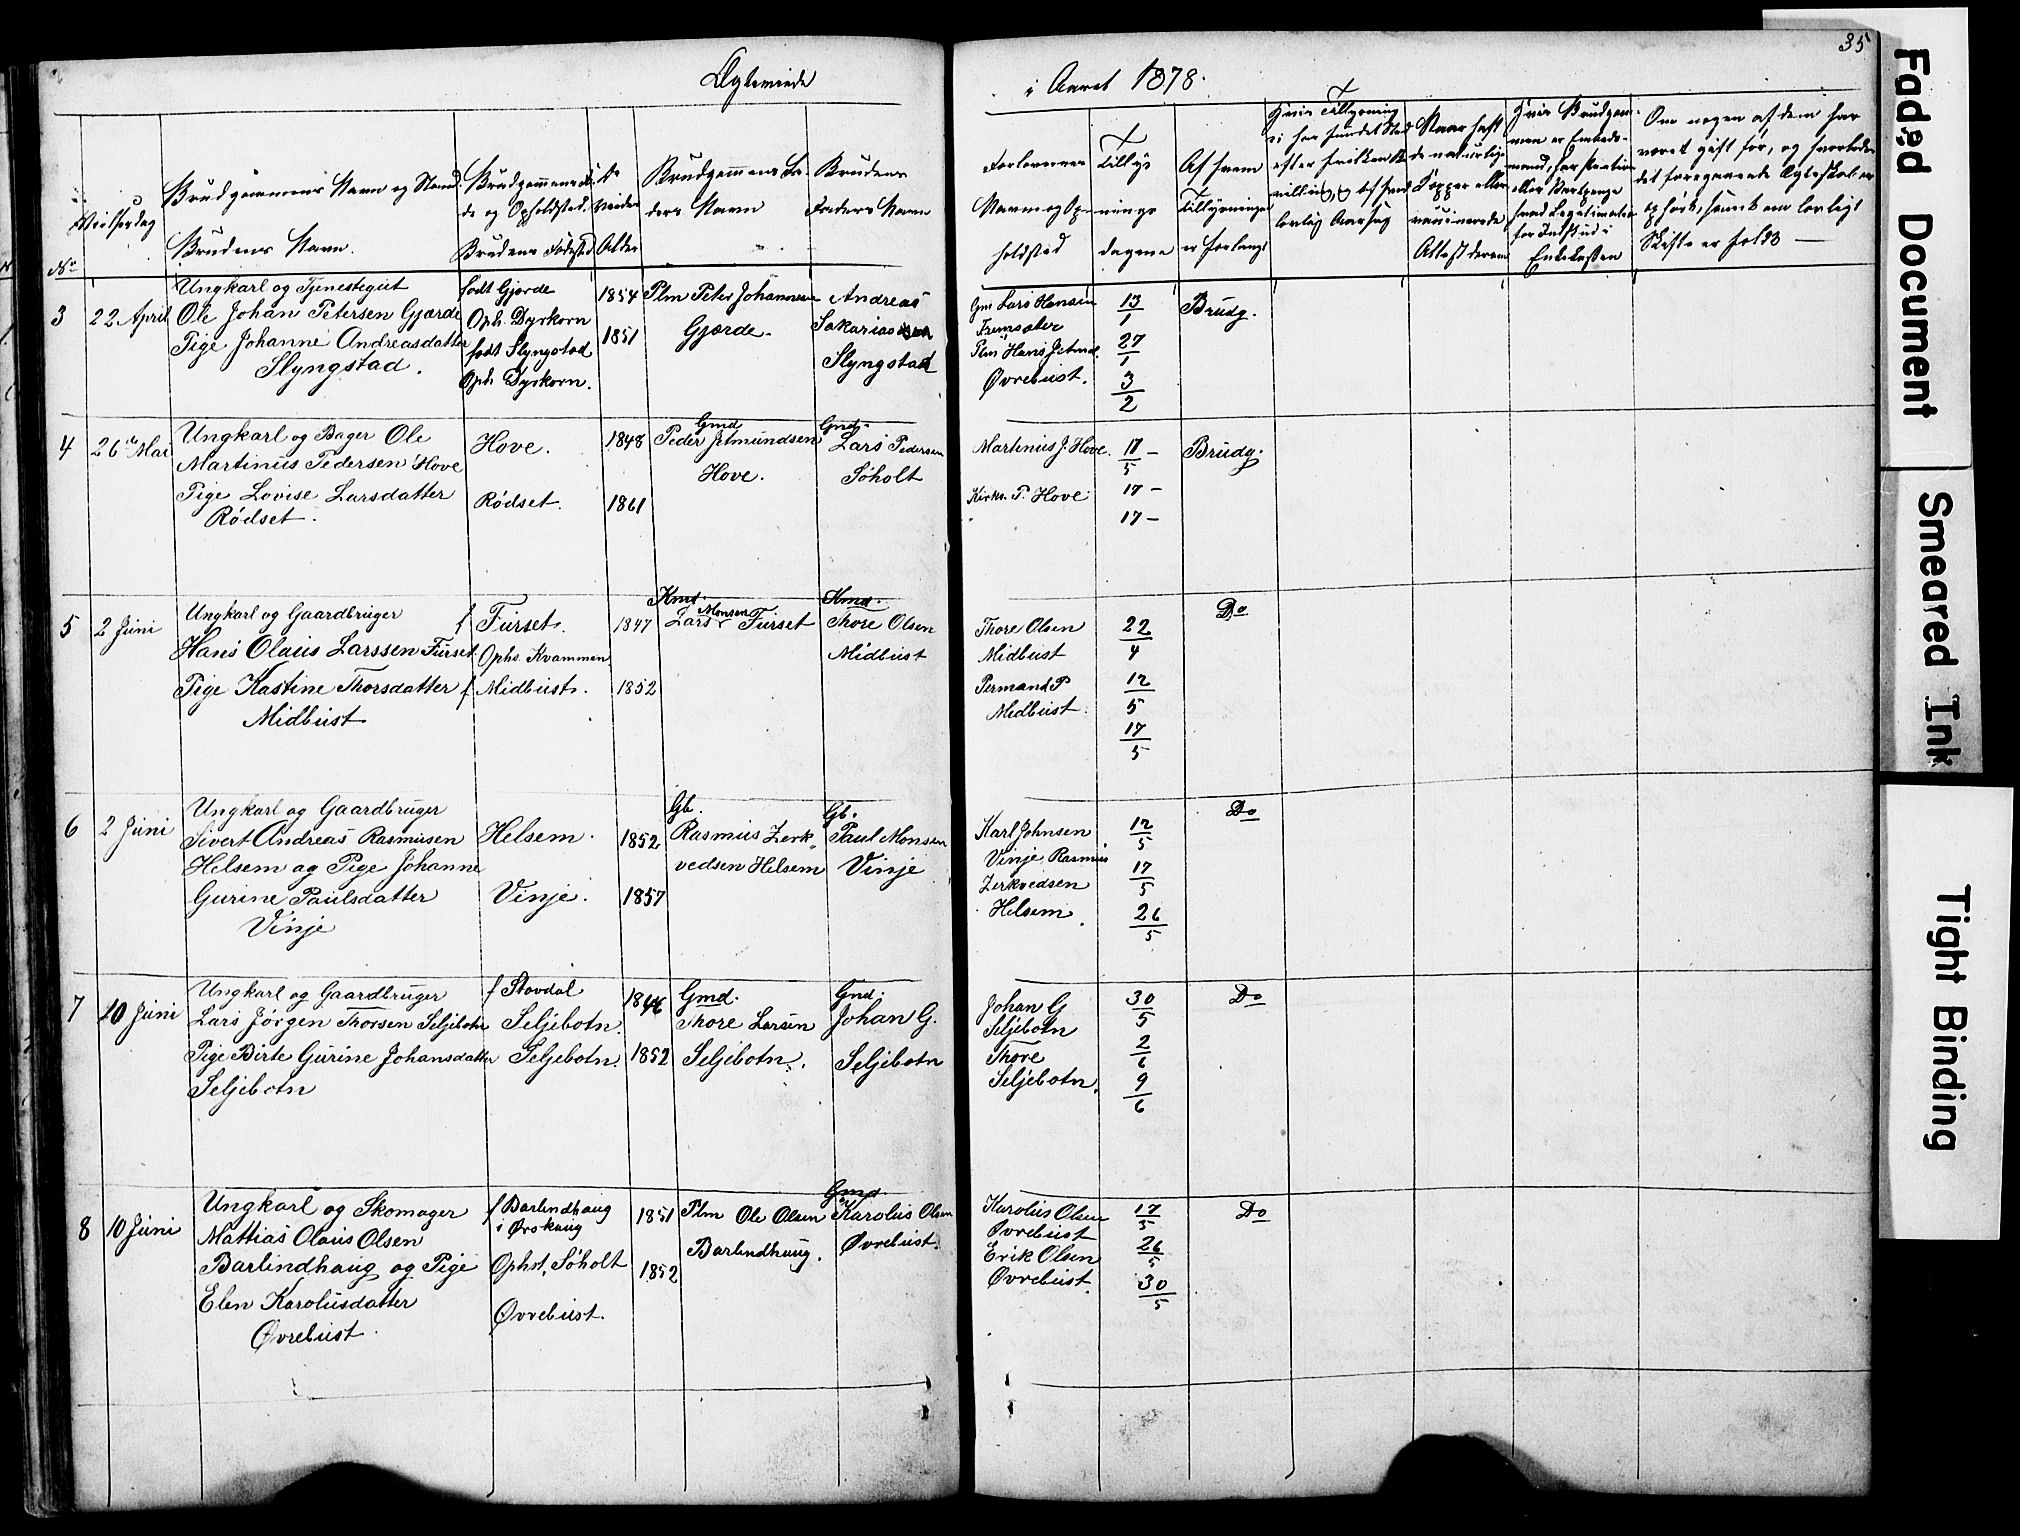 Ægteviede
i Aaret 1878.
35
No
Vielsesdag
Brudgommens Navn og Stand.
Brudens Navn.
Brudgommens Føde og Opholdsted.
Brudens Fødested
Alder
Brudgommens Faders Navn
Brudens Faders Navn
Forlovernes
Navn og Opholdsted
Tillysnings
dagene
Af hvem
Tillysningen
er forlangt
3
22 April
Ungkarl og Tjenestegut
Ole Johan Petersen Gjærde
Pige Johanne Andreasdatter
Slyngstad.
født Gjærde
Oph. Dyrkorn
født Slyngstad
Oph Dyrkorn.
1854
1851
Plm Peter Johannesen
Gjærde.
Andreas
Sakariassen
Slyngstad
Gm Lars Hansen
Fremsæter
Plm Hans Jetmd.
Øvrebust.
13/1
27/1
3/2
Brudg.
4
26de Mai
Ungkarl og Bager Ole
Martinus Pedersen Hove
Pige Lovise Larsdatter
Rødset.
Hove.
Rødset.
1848
1861
Gmd
Peder Jetmundsen
Hove.
Gmd.
Lars Pedersen
Søholt
Martinus J. Hove.
Kirks. P. Hove
17/5 –
17 –
17 –
Brudg.
5
2 Juni
Ungkarl og Gaardbruger
Hans Olaus Larssen Furset
Pige Kastine Thorsdatter
Midbust
f Furset.
Ophs. Kvammen
f Midbust.
1847
1852
Kmd.
Lars Monsen Furset
Kmd.
Thore Olsen
Midbust
Thore Olsen
Midbust
Permand P
Midbust.
22/4
12/5
17/5
Do
6
2 Juni
Ungkarl og Gaardbruger
Sivert Andreas Rasmusen
Helsem og Pige Johanne
Gurine Paulsdatter
Vinje
Helsem.
Vinje.
1852
1857
Gb.
Rasmus Zerk
vedsen Helsem
Gb.
Paul Monsen
Vinje
Karl Johnsen
Vinje, Rasmus
Zerkvedsen
Helsem.
12/5
17/5
26/5
Do
7
10 Juni
Ungkarl og Gaardbruger
Lars Jørgen Thorsen Seljebotn
Pige Birte Gurine Johansdatter
Seljebotn
f Stovdal
Seljebotn.
Seljebotn.
1846
1852
Gmd.
Thore Larsen
Seljebotn.
Gmd.
Johan G.
Seljebotn
Johan G
Seljebotn
Thore
Seljebotn.
30/5
2/6
9/6
Do
8
10 Juni
Ungkarl og Skomager
Mattias Olaus Olsen
Barlindhaug og Pige
Elen Karolusdatter
Øvrebust.
f Barlindhaug
i Ørskaug
Ophst. Søholt
Øvrebust.
1851
1852
Plm Ole Olsen
Barlindhaug.
Gmd.
Karolus Olsen
Øvrebust.
Karolus Olsen
Øvrebust
Erik Olsen
Øvrebust.
17/5
26/5
30/5
Do
Faded Document
Smeared Ink
Tight Binding